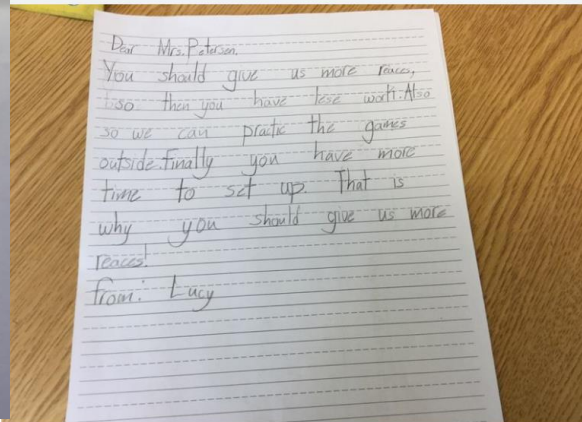 Dear Mrs. Peterson,
You should give us more reaces,
so then you have lese work. Also
so we can practic the games
outside. Finally you have more
time to set up. That is
why you should give us more
reaces!
from: Lucy